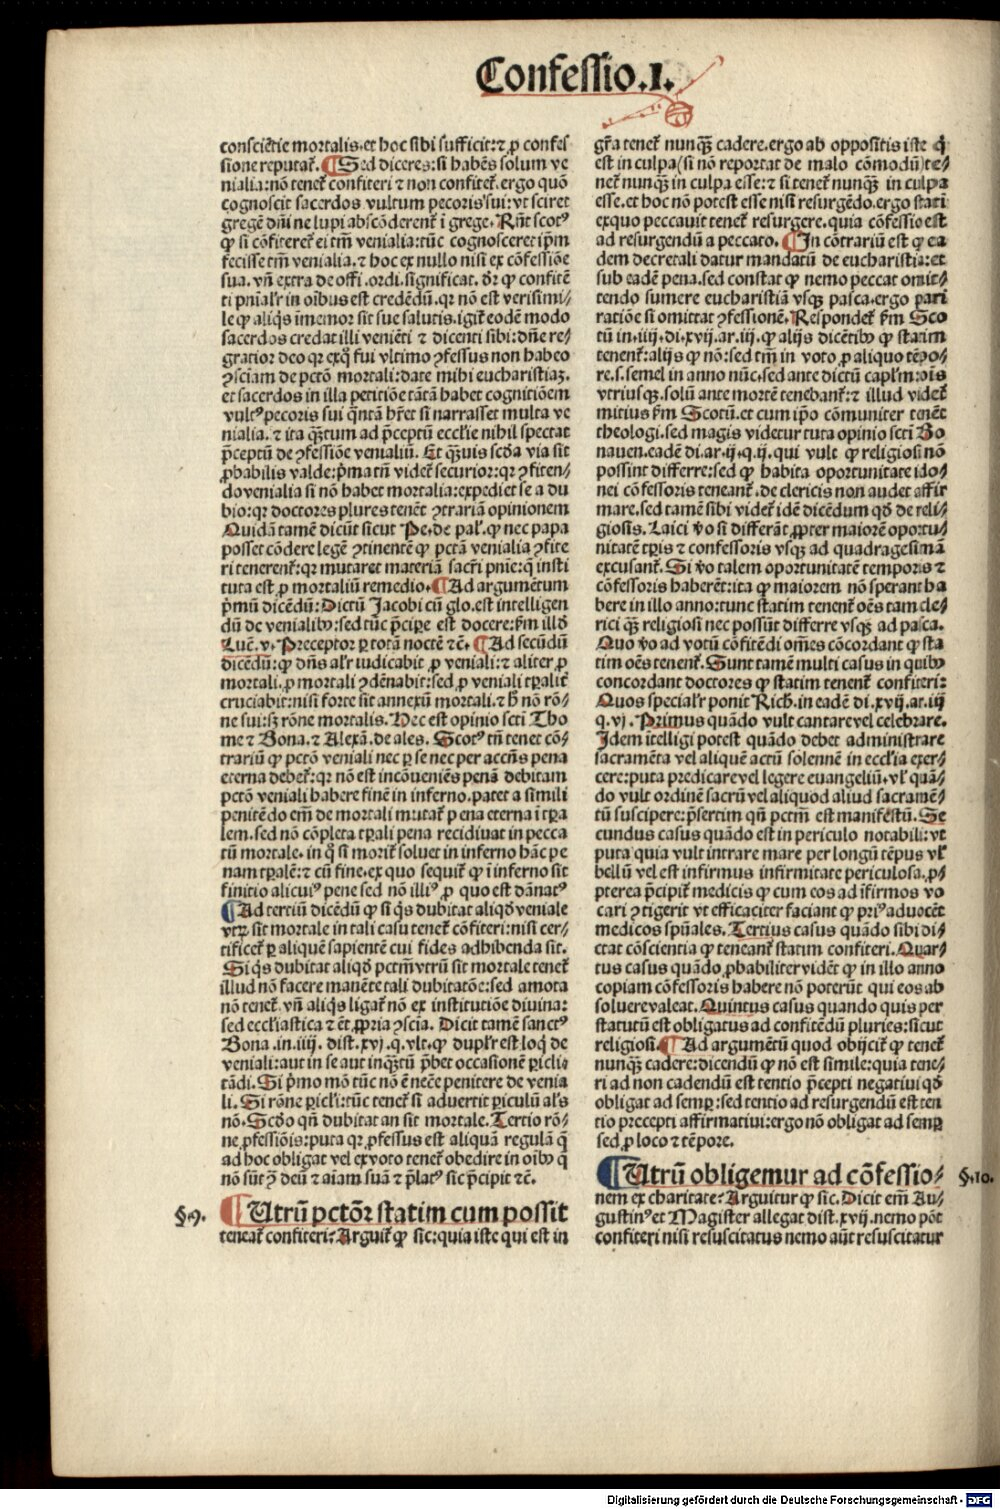 Confessio.I.
consciētie mortalis.et hoc sibi sufficit:⁊ ꝓ confes
sione reputat̄. ¶ Sed diceres:si habēs solum ve
nialia:nō tenet̄ confiteri ⁊ non confitet̄.ergo quō
cognoscit sacerdos vultum pecoris sui:vt sciret
gregē dn̄i ne lupi abscōderent̄ ī grege. Rn̄t scotꝰ
ꝙ si cōfiteret̄ ei tm̄ venialia:tūc cognosceret ip̄m
fecisse tm̄ venialia.⁊ hoc ex nullo nisi ex cōfessiōe
sua. vn̄ extra de offi.ordi.significat. dr̄ ꝙ confitē
ti pn̄ialr̄ in oībus est credēdū.qr nō est verisimi/
le ꝙ aliq̄s īmemor sit sue salutis.igit̄ eodē modo
sacerdos credat illi veniēti ⁊ dicenti sibi:dn̄e re/
gratior deo qr exq̄ fui vltimo ꝯfessus non habeo
ꝯsciam de pctō mortali:date mihi eucharistiaꝫ.
et sacerdos in illa petitiōe tātā habet cognitiōem
vultꝰ pecoris sui q̄ntā hr̄et si narrasset multa ve
nialia.⁊ ita q̄ꝫtum ad p̄ceptū eccl'ie nihil spectat
p̄ceptū de ꝯfessiōe venialiū. Et q̄ꝫuis scd̄a via sit
ꝓbabilis valde:p̄ma tn̄ videt̄ securior:qr ꝯfiten/
do venialia si nō habet mortalia:expediet se a du
bio:qr doctores plures tenēt ꝯtrariā opinionem
Quidā tamē dicūt sicut Pe.de pal'.ꝙ nec papa
posset cōdere legē ꝯtinentē ꝙ pctā venialia ꝯfite
ri tenerent̄:qr mutaret materiā sacr̄i pnīe:q̄ insti
tuta est ꝓ mortaliū remedio. ¶ Ad argumētum
p̄mū dicēdū:Dictū Jacobi cū glo.est intelligen
dū de venialibꝰ:sed tūc p̄cipe est docere:ẜm illđ
Luē.v. Preceptor ꝑ totā noctē ⁊c. ¶ Ad secūdū
dicēdū:ꝙ dn̄s alr̄ iudicabit ꝓ veniali:⁊ aliter ꝓ
mortali.ꝓ mortali ꝯdēnabit:sed ꝓ veniali tꝑalit̄
cruciabit:nisi forte sit annexū mortali.⁊ ħ nō rō/
ne sui:sꝫ rōne mortalis. Hec est opinio scti Tho
me ⁊ Bona.⁊ Alexā.de ales. Scotꝰ tn̄ tenet cō/
trariū ꝙ pctō veniali nec ꝑ se nec per accn̄s pena
eterna debet̄:qr nō est incōueniēs penā debitam
pctō veniali habere finē in inferno.patet a simili
penitēdo em̄ de mortali mutat̄ pena eterna ī tꝑa
lem.sed nō cōpleta tꝑali pena recidiuat in pecca
tū mortale.in q̄ si morit̄ soluet in inferno hāc pe
nam tꝑalē:⁊ cū fine.ex quo sequit̄ ꝙ ī inferno sit
finitio alicuiꝰ pene sed nō illiꝰ ꝓ quo est dānatꝰ
¶ Ad tertiū dicēdū ꝙ si q̄s dubitat aliqđ veniale
vtꝝ sit mortale in tali casu tenet̄ cōfiteri:nisi cer/
tificet̄ ꝑ aliquē sapientē cui fides adhibenda sit.
Si q̄s dubitat aliqđ pctm̄ vtrū sit mortale tenet̄
illud nō facere manēte tali dubitatōe:sed amota
nō tenet̄. vn̄ aliq̄s ligat̄ nō ex institutiōe diuina:
sed eccl'iastica ⁊ ēt ꝓpria ꝯscia. Dicit tamē sanctꝰ
Bona.in.iiij. dist.xvj.q.vlt.ꝙ duplr̄ est loq̄ de
veniali:aut in se aut inq̄ꝫtū p̄bet occasionē ꝑicli/
tādi. Si p̄mo mō tūc nō ē neēe penitere de venia
li. Si rōne ꝑicl'i:tūc tenet̄ si aduertit ꝑiculū al's
nō. Scđo qn̄ dubitat an sit mortale. Tertio rō/
ne ꝓfessiōis:puta qr ꝓfessus est aliquā regulā q̄
ad hoc obligat vel ex voto tenet̄ obedire in oībꝰ q̄
nō sūt ꝯ deū ⁊ aīam suā ⁊ p̄latꝰ sic p̄cipit ⁊c.
§.9. ¶ Utrū pctōr statim cum possit
teneat̄ confiteri? Arguit̄ ꝙ sic:quia iste qui est in
gr̄a tenet̄ nunq̄ꝫ cadere.ergo ab oppositis iste q̄
est in culpa(si nō reportat de malo cōmodū)te/
net̄ nunq̄ꝫ in culpa esse:⁊ si tenet̄ nunq̄ꝫ in culpa
esse.et hoc nō potest esse nisi resurgēdo.ergo stati
exquo peccauit tenet̄ resurgere.quia cōfessio est
ad resurgendū a peccato. ¶ In cōtrariū est ꝙ ea
dem decretali datur mandatū de eucharistia:et
sub eadē pena.sed constat ꝙ nemo peccat omit/
tendo sumere eucharistiā vsqꝫ pasca.ergo pari
ratiōe si omittat ꝯfessionē. Respondet̄ ẜm Sco
tū in.iiij.di.xvij.ar.iij.ꝙ alijs dicētibꝰ ꝙ statim
tenent̄:alijs ꝙ nō:sed tm̄ in voto ꝓ aliquo tēpo/
re.s.semel in anno nūc.sed ante dictū capl'm:oīs
vtriusqꝫ.solū ante mortē tenebant̄:⁊ illud videt̄
mitius ẜm Scotū.et cum ip̄o cōmuniter tenēt
theologi.sed magis videtur tuta opinio scti Bo
nauen.eadē di.ar.ij.q.ij.qui vult ꝙ religiosi nō
possint differre:sed ꝙ habita oportunitate ido/
nei cōfessoris teneant̄.de clericis non audet affir
mare.sed tamē sibi videt̄ idē dicēdum qđ de reli/
giosis. Laici v̄o si differāt ꝓpter maiorē oportu/
nitatē tꝑis ⁊ confessoris vsqꝫ ad quadragesimā
excusant̄. Si v̄o talem oportunitatē temporis ⁊
cōfessoris haberēt:ita ꝙ maiorem nō sperant ha
bere in illo anno:tunc statim tenent̄ oēs tam cle/
rici q̄ꝫ religiosi nec possūt differre vsqꝫ ad pasca.
Quo v̄o ad votū cōfitēdi om̄es cōcordant ꝙ sta
tim oēs tenent̄. Sunt tamē multi casus in quibꝰ
concordant doctores ꝙ statim tenent̄ confiteri:
Quos specialr̄ ponit Rich.in eadē di.xvij.ar.iij
q.vj. Primus quādo vult cantare vel celebrare.
Idem ītelligi potest quādo debet administrare
sacramēta vel aliquē actū solennē in eccl'ia exer/
cere:puta predicare vel legere euangeliū.vl' quā/
do vult ordinē sacrū vel aliquod aliud sacramē/
tū suscipere:p̄sertim qn̄ pctm̄ est manifestū. Se
cundus casus quādo est in periculo notabili:vt
puta quia vult intrare mare per longū tēpus vl'
bellū vel est infirmus infirmitate periculosa.ꝓ/
pterea p̄cipit̄ medicis ꝙ cum eos ad īfirmos vo
cari ꝯtigerit vt efficaciter faciant ꝙ priꝰ aduocēt
medicos spūales. Tertius casus quādo sibi di/
ctat cōscientia ꝙ teneant̄ statim confiteri. Quar/
tus casus quādo ꝓbabiliter vidēt ꝙ in illo anno
copiam cōfessoris habere nō poterūt qui eos ab
soluere valeat. Quintus casus quando quis per
statutū est obligatus ad confitēdū pluries:sicut
religiosi. ¶ Ad argumētū quod obijcit̄ ꝙ tenet̄
nunq̄ꝫ cadere:dicendū ꝙ nō est simile:quia tene/
ri ad non cadendū est tentio p̄cepti negatiui qđ
obligat ad semꝑ:sed tentio ad resurgendū est ten
tio precepti affirmatiui:ergo nō obligat ad semꝑ
sed ꝓ loco ⁊ tēpore.
¶ Utrū obligemur ad cōfessio/ §.10.
nem ex charitate? Arguitur ꝙ sic. Dicit em̄ Au/
gustinꝰ et Magister allegat dist.xvij.nemo pōt
confiteri nisi resuscitatus nemo aūt resuscitatur
Digitalisierung gefördert durch die Deutsche Forschungsgemeinschaft - DFG